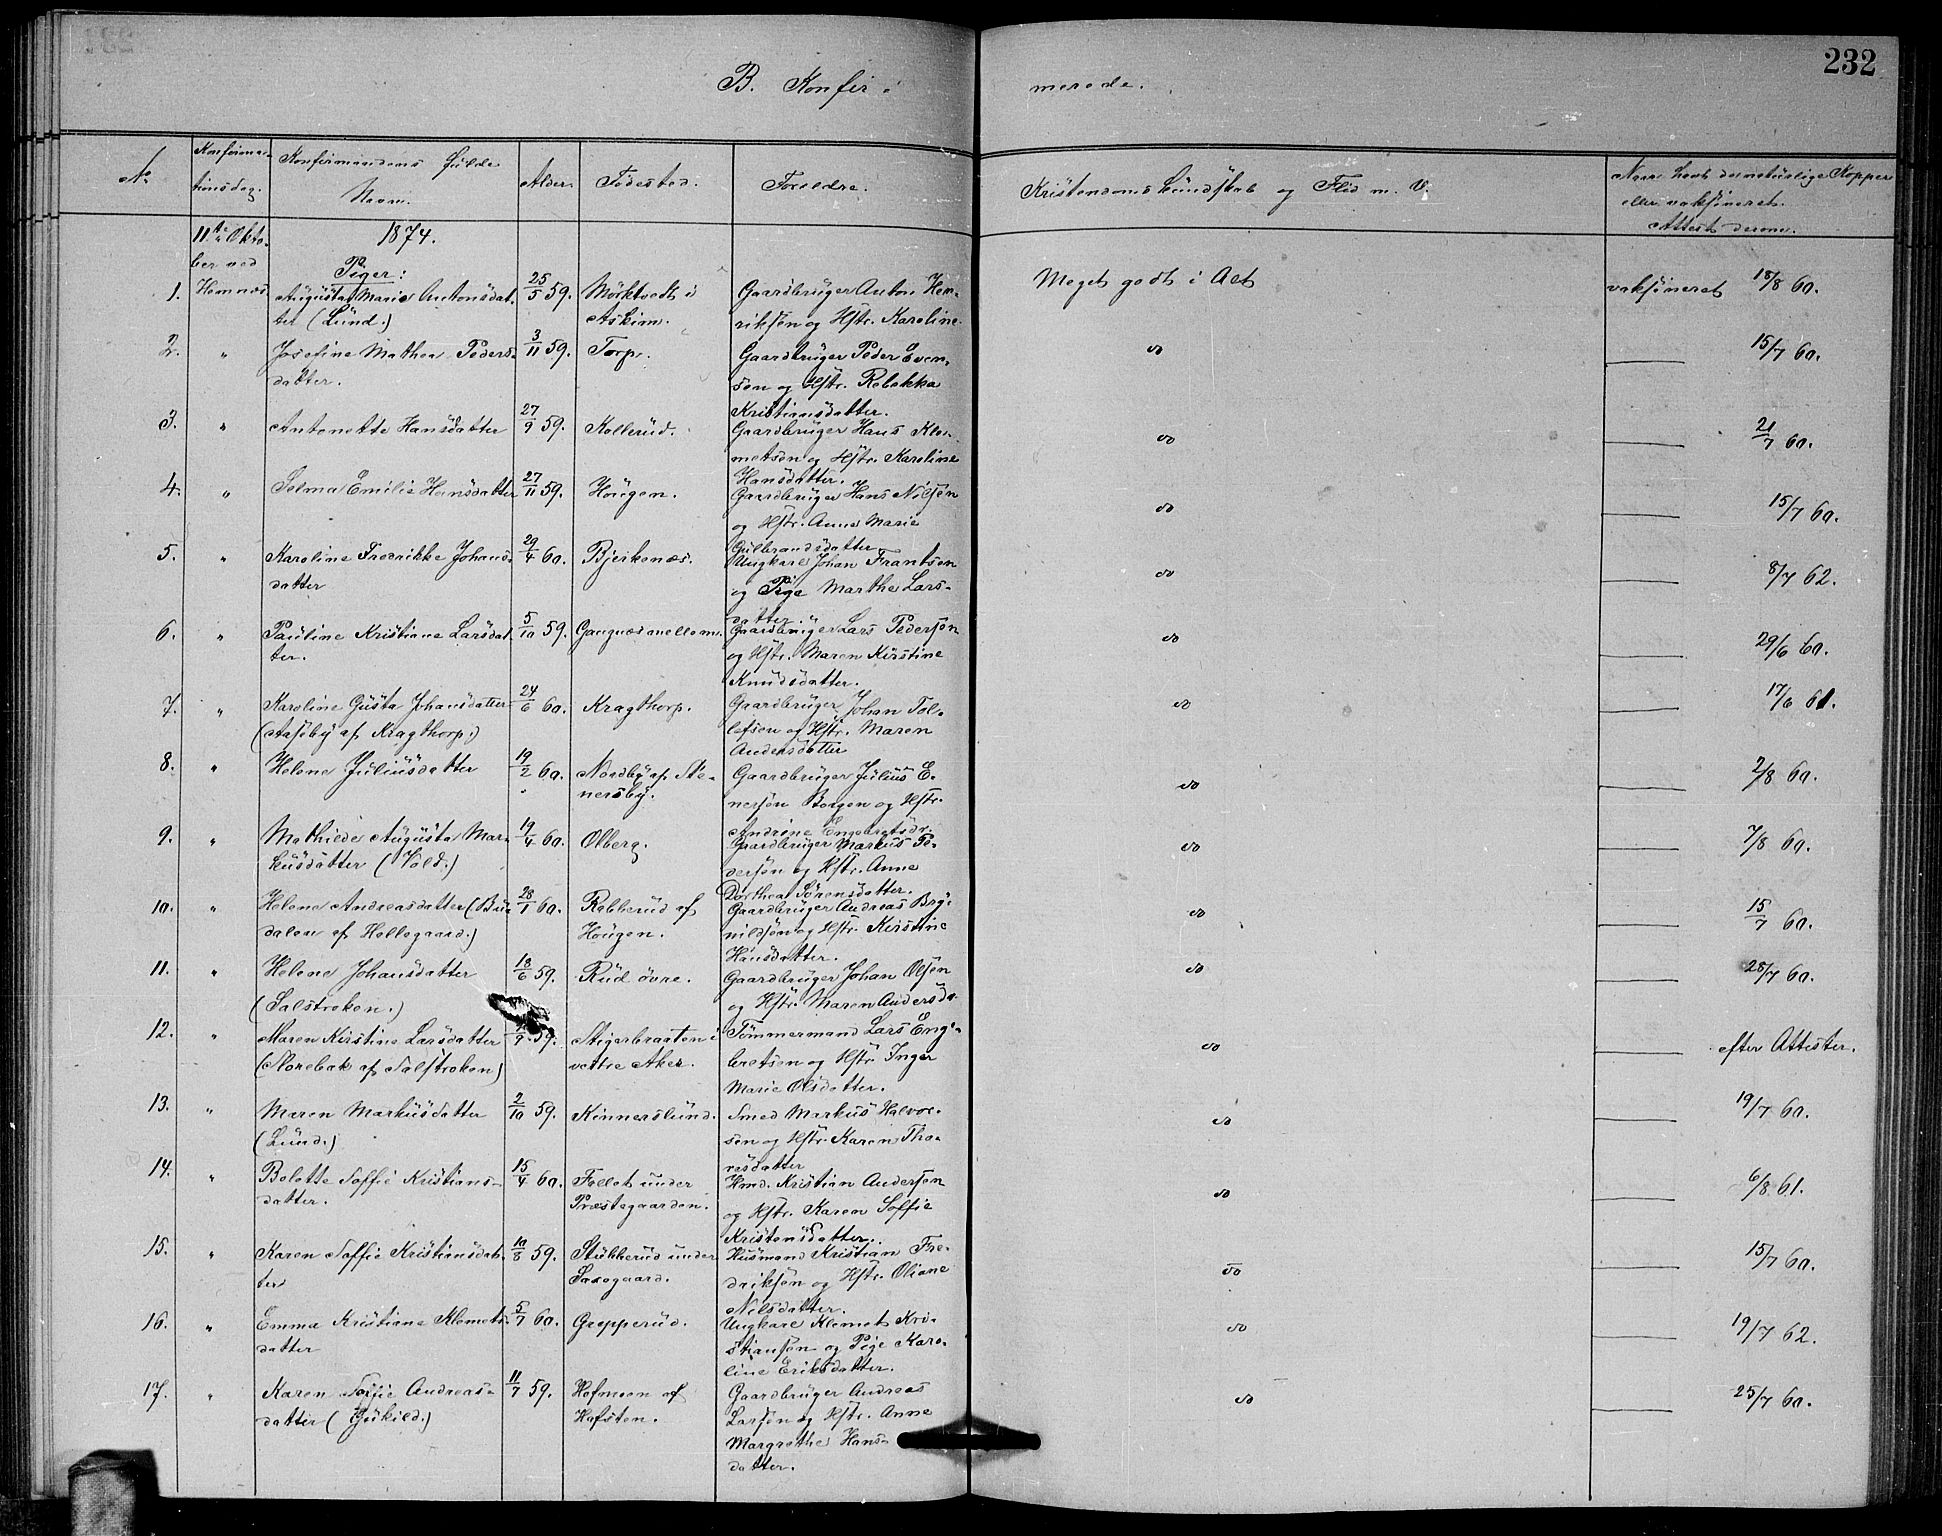 232
B. Konfir-
merede.
No.
Konfirma-
tionsdag.
Konfirmandens fulde
Navn.
Alder.
Fødested.
Forældre.
Kristendomskundskab og Flid m. V.
Naar havt de naturlige Kopper
eller vaksineret.
Attest derom.
11te Okto-
ber ved
Hemnæs
1874.
Piger:
1. Augusta Marie Antonsdat-
ter (Lund.)
25/5 59.
Mørktvedt i
Askim.
Gaardbruger Anton Hen-
riksøn og Hstr. Karoline
Meget godt i Alt
vaksineret 18/8 60.
2. " Josefine Mathea Peders-
datter.
3/11 59.
Torp.
Gaardbruger Peder Even-
søn og Hstr. Rebekka
Kristiansdatter.
do
15/7 60.
3. " Antonette Hansdatter
27/9 59.
Kollerud.
Gaardbruger Hans Kle-
metsøn og Hstr. Karoline
Hansdatter.
do
21/7 60.
4. " Selma Emilie Hansdatter
27/11 59.
Hougen.
Gaardbruger Hans Nilsøn
og Hstr. Anne Marie
Gulbrandsdatter
do
15/7 60.
5. " Karoline Fredrikke Johans-
datter
29/4 60.
Bjerkenæs.
Ungkarl Johan Frantsøn
og Pige Marthe Lars-
datter.
do
8/7 62.
6. " Pauline Kristiane Larsdat-
ter.
5/10 59.
Gangnæs mellem.
Gaardbruger Lars Pedersøn
og Hstr. Maren Kirstine
Knudsdatter.
do
29/6 60.
7. " Karoline Gusta Johansdatter
(Aasby af Kragthorp.)
24/6 60.
Kragthorp.
Gaardbruger Johan Tol-
lefsøn og Hstr. Maren
Andersdatter
do
17/6 61.
8. " Helene Juliusdatter
19/2 60.
Nordby af Ste-
nersby.
Gaardbruger Julius E-
nersøn Borgen og Hstr.
Andrine Engebretsdr.
do
2/8 60.
9. " Mathilde Augusta Mar-
kusdatter (Vold.)
19/4 60.
Olberg.
Gaardbruger Markus Pe-
dersøn og Hstr. Anne
Dorthea Sørensdatter.
do
7/8 60.
10. " Helene Andreasdatter (Bu-
dalen af Hellegaard.)
28/1 60.
Rakkerud af
Hougen.
Gaardbruger Andreas Bry-
nildsøn og Hstr. Kirstine
Hansdatter.
do
15/7 60.
11. " Helene Johansdatter
(Salstroken.)
18/6 59.
Rud øvre.
Gaardbruger Johan Olsøn
og Hstr. Maren Andersdr.
do
28/7 60.
12. " Maren Kirstine Larsdatter
(Norebak af Salstroken)
59.
Stigerbraaten i
vestre Aker.
Tømmermand Lars Enge-
bretsøn og Hstr. Inger
Marie Olsdatter.
do
efter Attester.
13. " Maren Markusdatter
(Lund.)
2/10 59.
Kinnerslund.
Smed Markus Halvor-
søn og Hstr. Karen Tho-
resdatter
do
19/7 60.
14. " Belotte Soffie Kristians-
datter.
15/4 60.
Fallet under
Præstegaarden.
Hmd. Kristian Andersøn
og Hstr. Karen Soffie
Kristensdatter.
do
6/8 61.
15. " Karen Soffie Kristiansdat-
ter
10/8 59.
Stubberud under
Saxegaard.
Husmand Kristian Fre-
driksøn og Hstr. Oliane
Nilsdatter.
do
15/7 60.
16. " Emma Kristiane Klemets-
datter
5/7 60.
Grepperud.
Ungkarl Klemet Kri-
stiansøn og Pige Karo-
line Eriksdatter.
do
19/7 62.
17. " Karen Soffie Andreas-
datter (Gukild.)
11/7 59.
Hofmoen af
Hofsten.
Gaardbruger Andreas
Larsøn og Hstr. Anne
Margrethe Hans-
datter.
do
25/7 60.